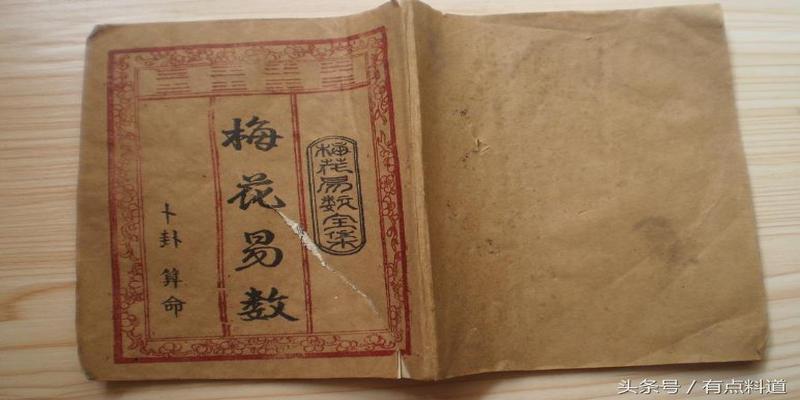 梅花易数全集
梅花易数
卜卦算命
头条号／有点料道